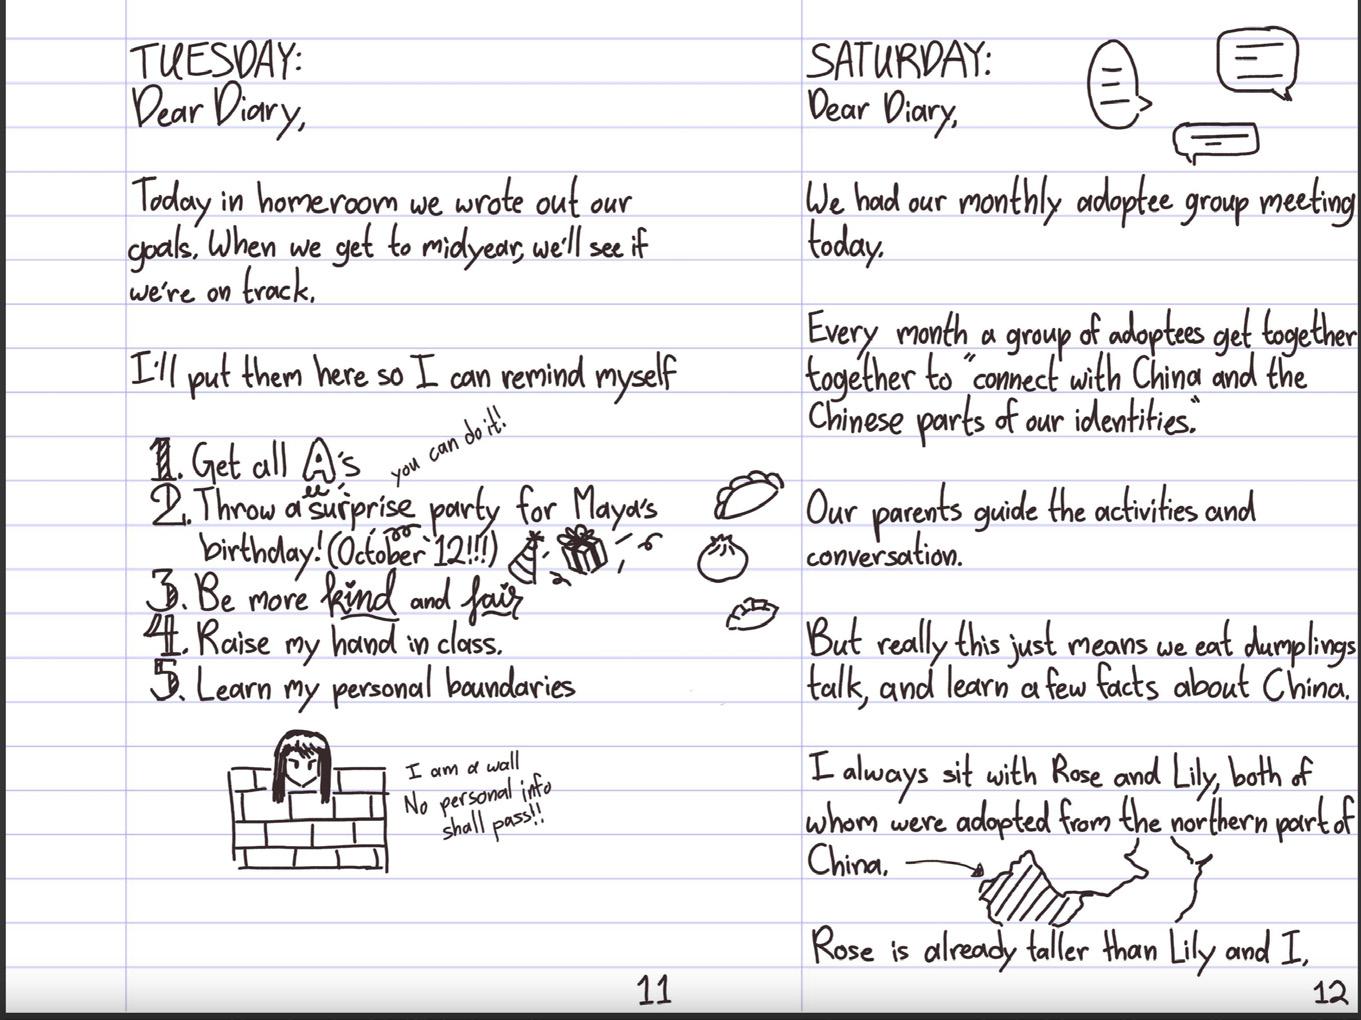 TUESDAY:
Dear Diary,
Today in homeroom we wrote out our
goals. When we get to midyear, we'll see if
we're on track.
I'll put them here so I can remind myself
you can do it!
1. Get all A's
2. Throw a surprise party for Maya's
birthday! (October 12!!!)
3. Be more kind and fair
4. Raise my hand in class.
5. Learn my personal boundaries
I am a wall
No personal info
shall pass!!
11
SATURDAY:
Dear Diary,
We had our monthly adoptee group meeting
today.
Every month a group of adoptees get together
together to "connect with China and the
Chinese parts of our identities."
Our parents guide the activities and
conversation.
But really this just means we eat dumplings
talk, and learn a few facts about China.
I always sit with Rose and Lily, both of
whom were adopted from the northern part of
China.
Rose is already taller than Lily and I,
12